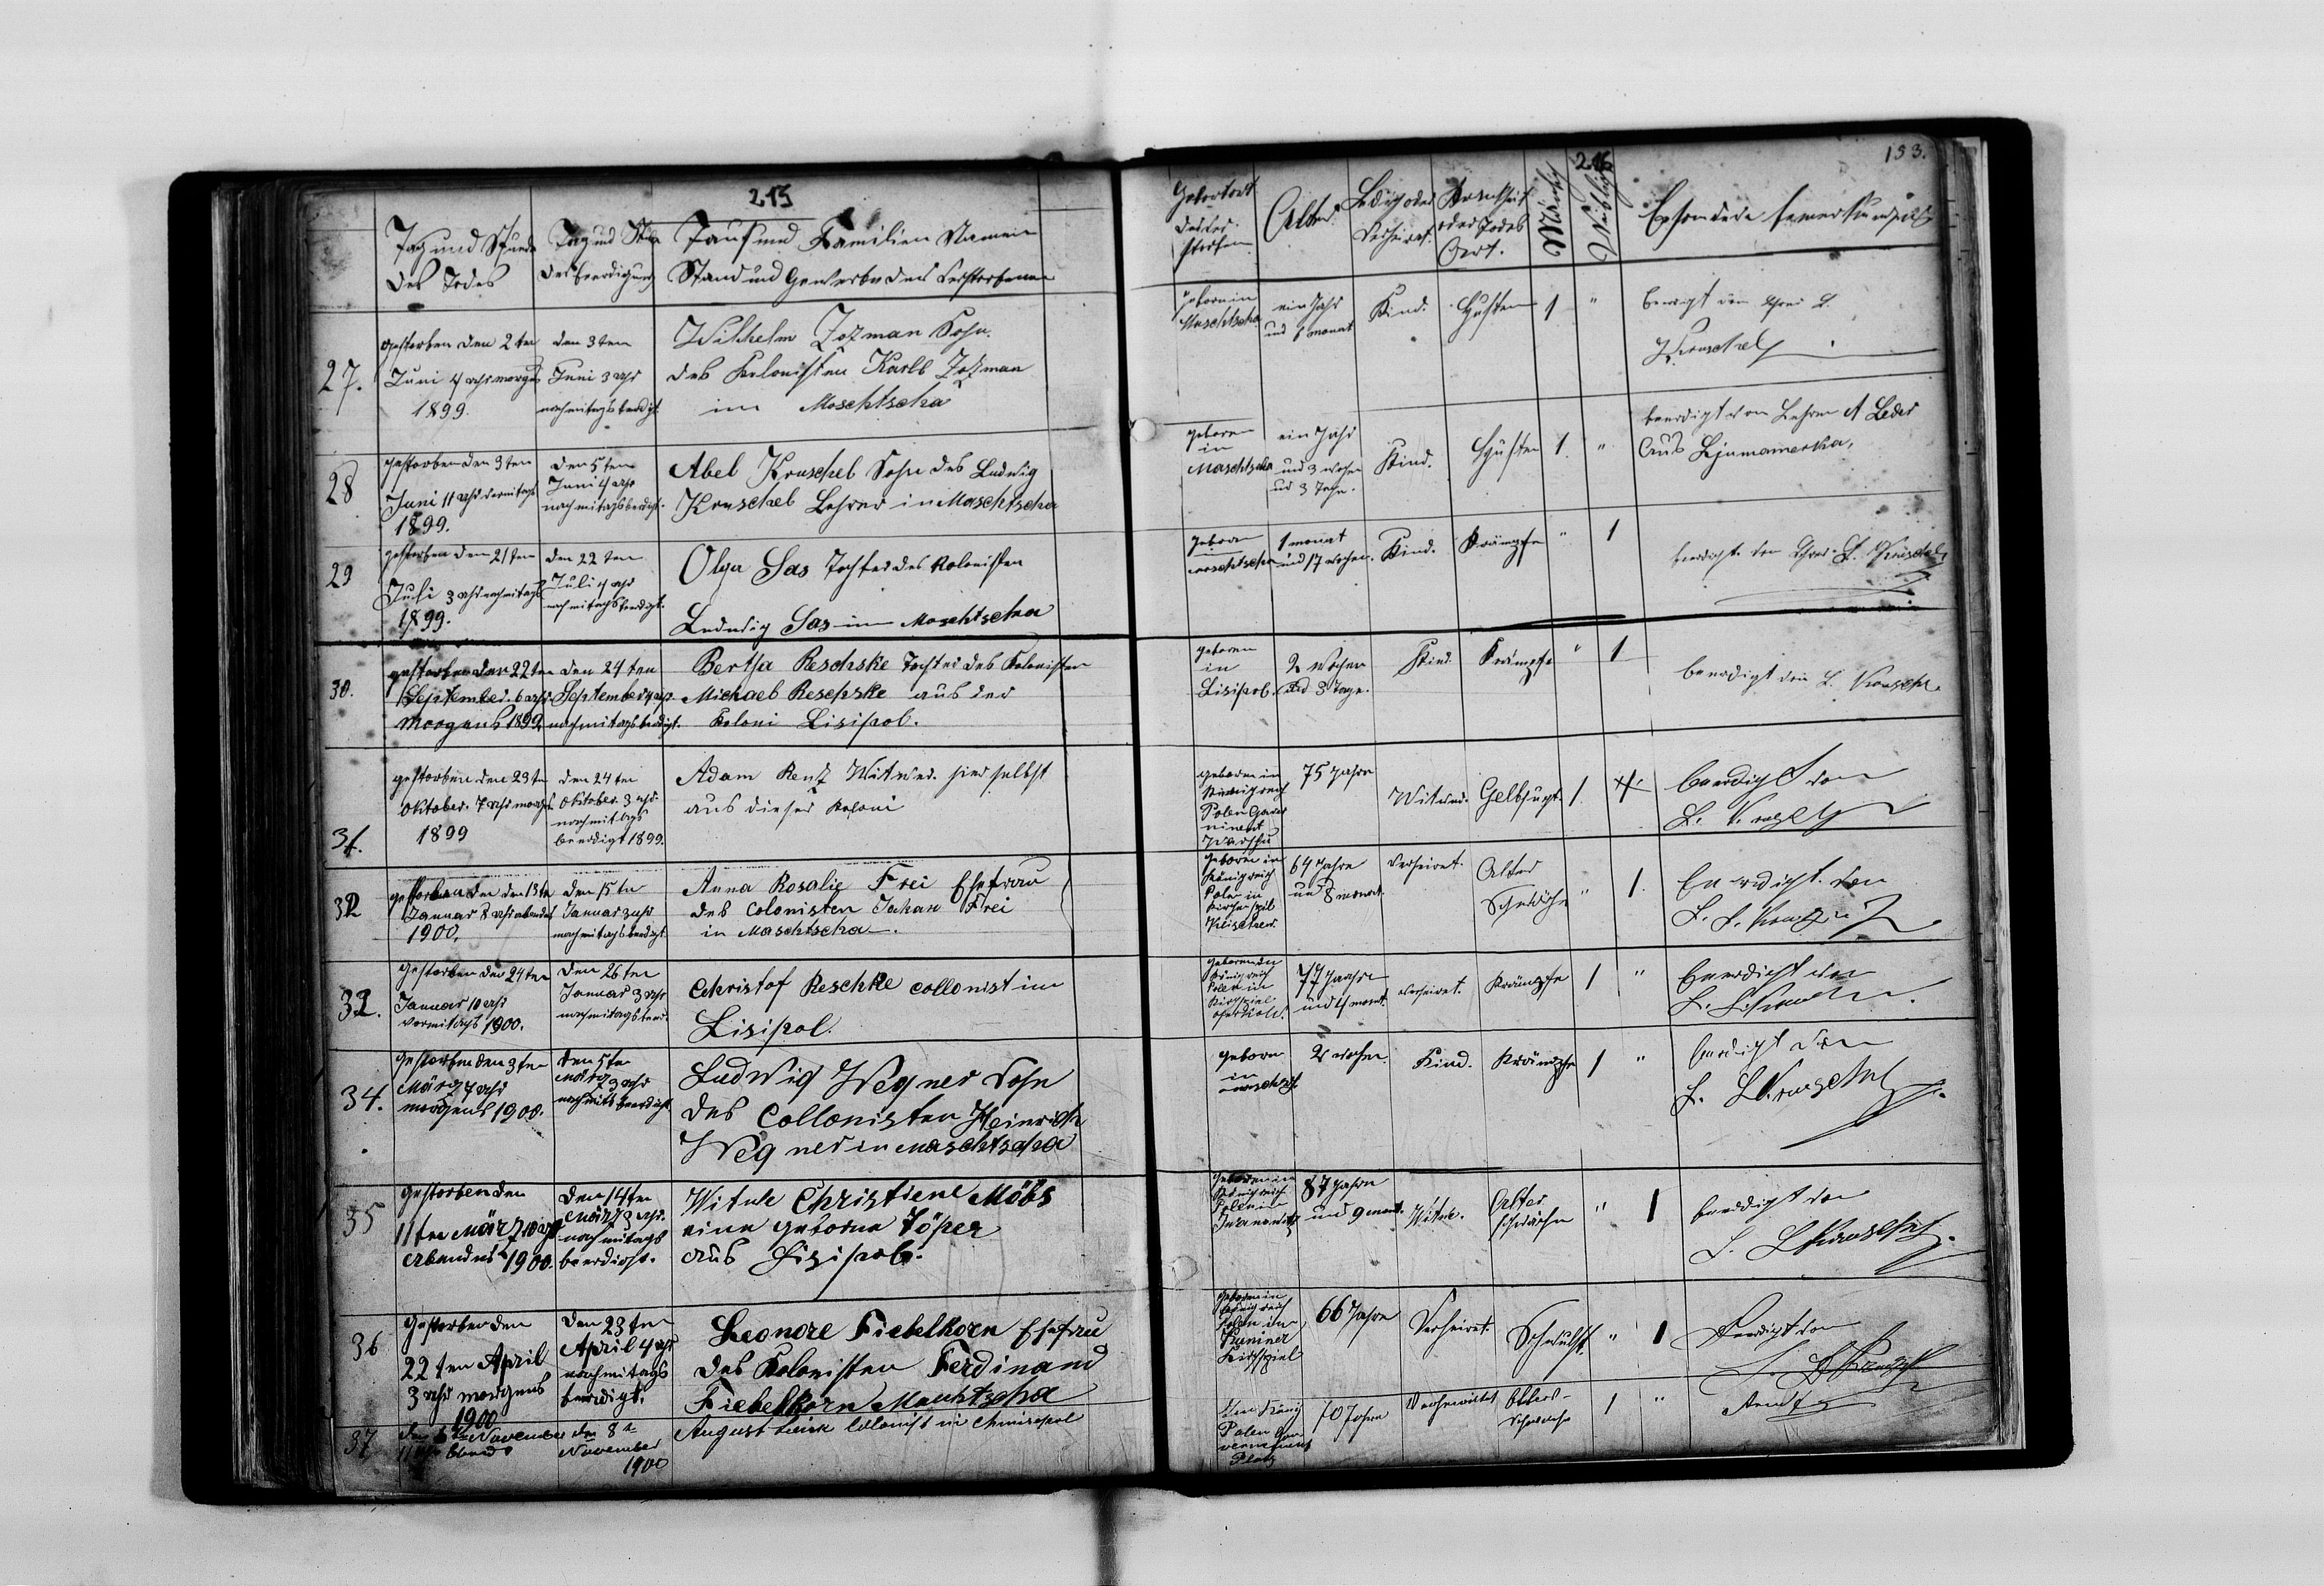 215
Tag und Stunde
des Todes
Tag und Stu
der beerdigung
Tauf und Familien Namen
Stand und Gewerbe des Verstorbenen
27.
gestorben den 2ten
Juni 4 uhr morgens
1899.
den 3ten
Juni 3 uhr
nachmitags beerdigt
Wilhelm Zozman Sohn
des Kolonisten Karls Zozman
im Moschtscha
28
gestorben den 3ten
Juni 11 uhr vormitags
1899.
den 5ten
Juni 4 uhr
nachmitags beerdigt.
Abel Kruschel Sohn des Ludwig
Kruschel Lehrer in Maschtscha
29
gestorben den 21ten
Juli 3 uhr nachmitags
1899.
den 22ten
Juli 4 uhr
nachmitags beerdigt.
Olga Sas Tochter des Kolonisten
Ludwig Sas im Moschtscha
30.
gestorben den 22ten
September 6 uhr
Morgens 1899
den 24ten
September 4 uhr
nachmitags beerdigt.
Bertha Reschske Tochter des Kolonisten
Michael Reschske aus der
Koloni Lisipol.
31.
gestorben den 23ten
Oktober 7 uhr morgs
1899
den 24ten
Oktober 3 uhr
nachmitags
beerdigt 1899.
Adam Renz Witwer hier selbst
aus dieser Koloni
32
gestorben den den 13ten
Januar 8 uhr abendes
1900.
den 15ten
Januar 3 uhr
nachmitags beerdigt
Anna Rosalie Frei Ehefrau
des Colonisten Johan Frei
in Maschtscha.
32.
Gestorben den 24ten
Januar 10 uhr
vormitags 1900.
den 26ten
Januar 3 uhr
nachmitags beer.
Christof Reschke collonist im
Lisipol.
34.
Gestorben den 3ten
März 7 uhr
morgens 1900.
den 5ten
März 3 uhr
nachmit beerdigt
Ludwig Wegner Sohn
des Collonisten Heinrich
Wegner in Maschtscha
35
Gestorben den
11ten März 10 uhr
abendes 1900.
den 14ten
März 3 uhr
nachmitags
beerdigt.
Witwe Christiene Möbs
eine geborne Töper
aus Lisipol.
36
Gestorben den
22ten April
3 uhr morgens
1900
den 23ten
April 4 uhr
nachmitags
beerdigt.
Leonore Fiebelkorn Ehefrau
des Kolonisten Ferdinand
Fiebelkorn Machtscha
37
den 6ten November
11 uhr Abends
den 8ten
November
1900
August Colonist in
216
153.
Geburtort
des Ver-
storbenen
Alter.
Ledig oder
Verheirat.
Krankheit
oder Todes
Art.
Mänlich
Weiblich
Besondere bemerkungen
geboren in
Maschtscha
ein Jahr
und 1 monat
Kind.
Husten
1
"
Beerdigt von
Kruschel
geboren
in
Maschtscha
ein Jahr
und 3 wochen
und 3 Tage.
Kind.
Husten
1.
"
beerdigt von Lehrer A Leder
Aus Ljunamerka,
geboren
moschtscha
1 monat
und 17 wochen.
Kind.
Krämpfe
"
1
beerdigt von L. Kruschel
geboren
in
Lisipol.
2 wochen
und 3 Tage.
Kind
Krämpfe
"
1
beerdigt von L. Kruschel
geboren in
Königreich
Polen Gouver
niment
Warschau
75 Jahre
Witwer.
Gelbsucht
1.
beerdigt von
L. Kruschel
geboren in
Königreich
Polen in
Kirchspiel
64 Jahre
und 8 monat.
Verheiret.
Alter
Schwäche
"
1.
Beerdigt von
L. L. Kruschel
geboren in
Königreich
Polen in
Kirchspiel
77 Jahre
und 4 monat.
verheiret.
Krämpfe
1
"
Beerdigt von
L. L. Kruschel.
geboren
in
moschtsch
2 wochen
Kind.
Krämpfe
1
"
beerdigt von
L. L. Kruschel
geboren in
Königreich
Polen in
87 Jahre
und 9 monat.
Witwe.
Alter
schwäche
"
1
beerdigt von
L. L Kruschel.
geboren in
Königreich
Polen im
Kirchspiel
66 Jahre
Verheiret.
Schwulst.
"
1
Beerdigt von
L. L Kruschel
Im König
Polen Gou-
vernement
Plotz
70 Jahre
Verheiratet
Alters-
schwäche
1
"
Arndt